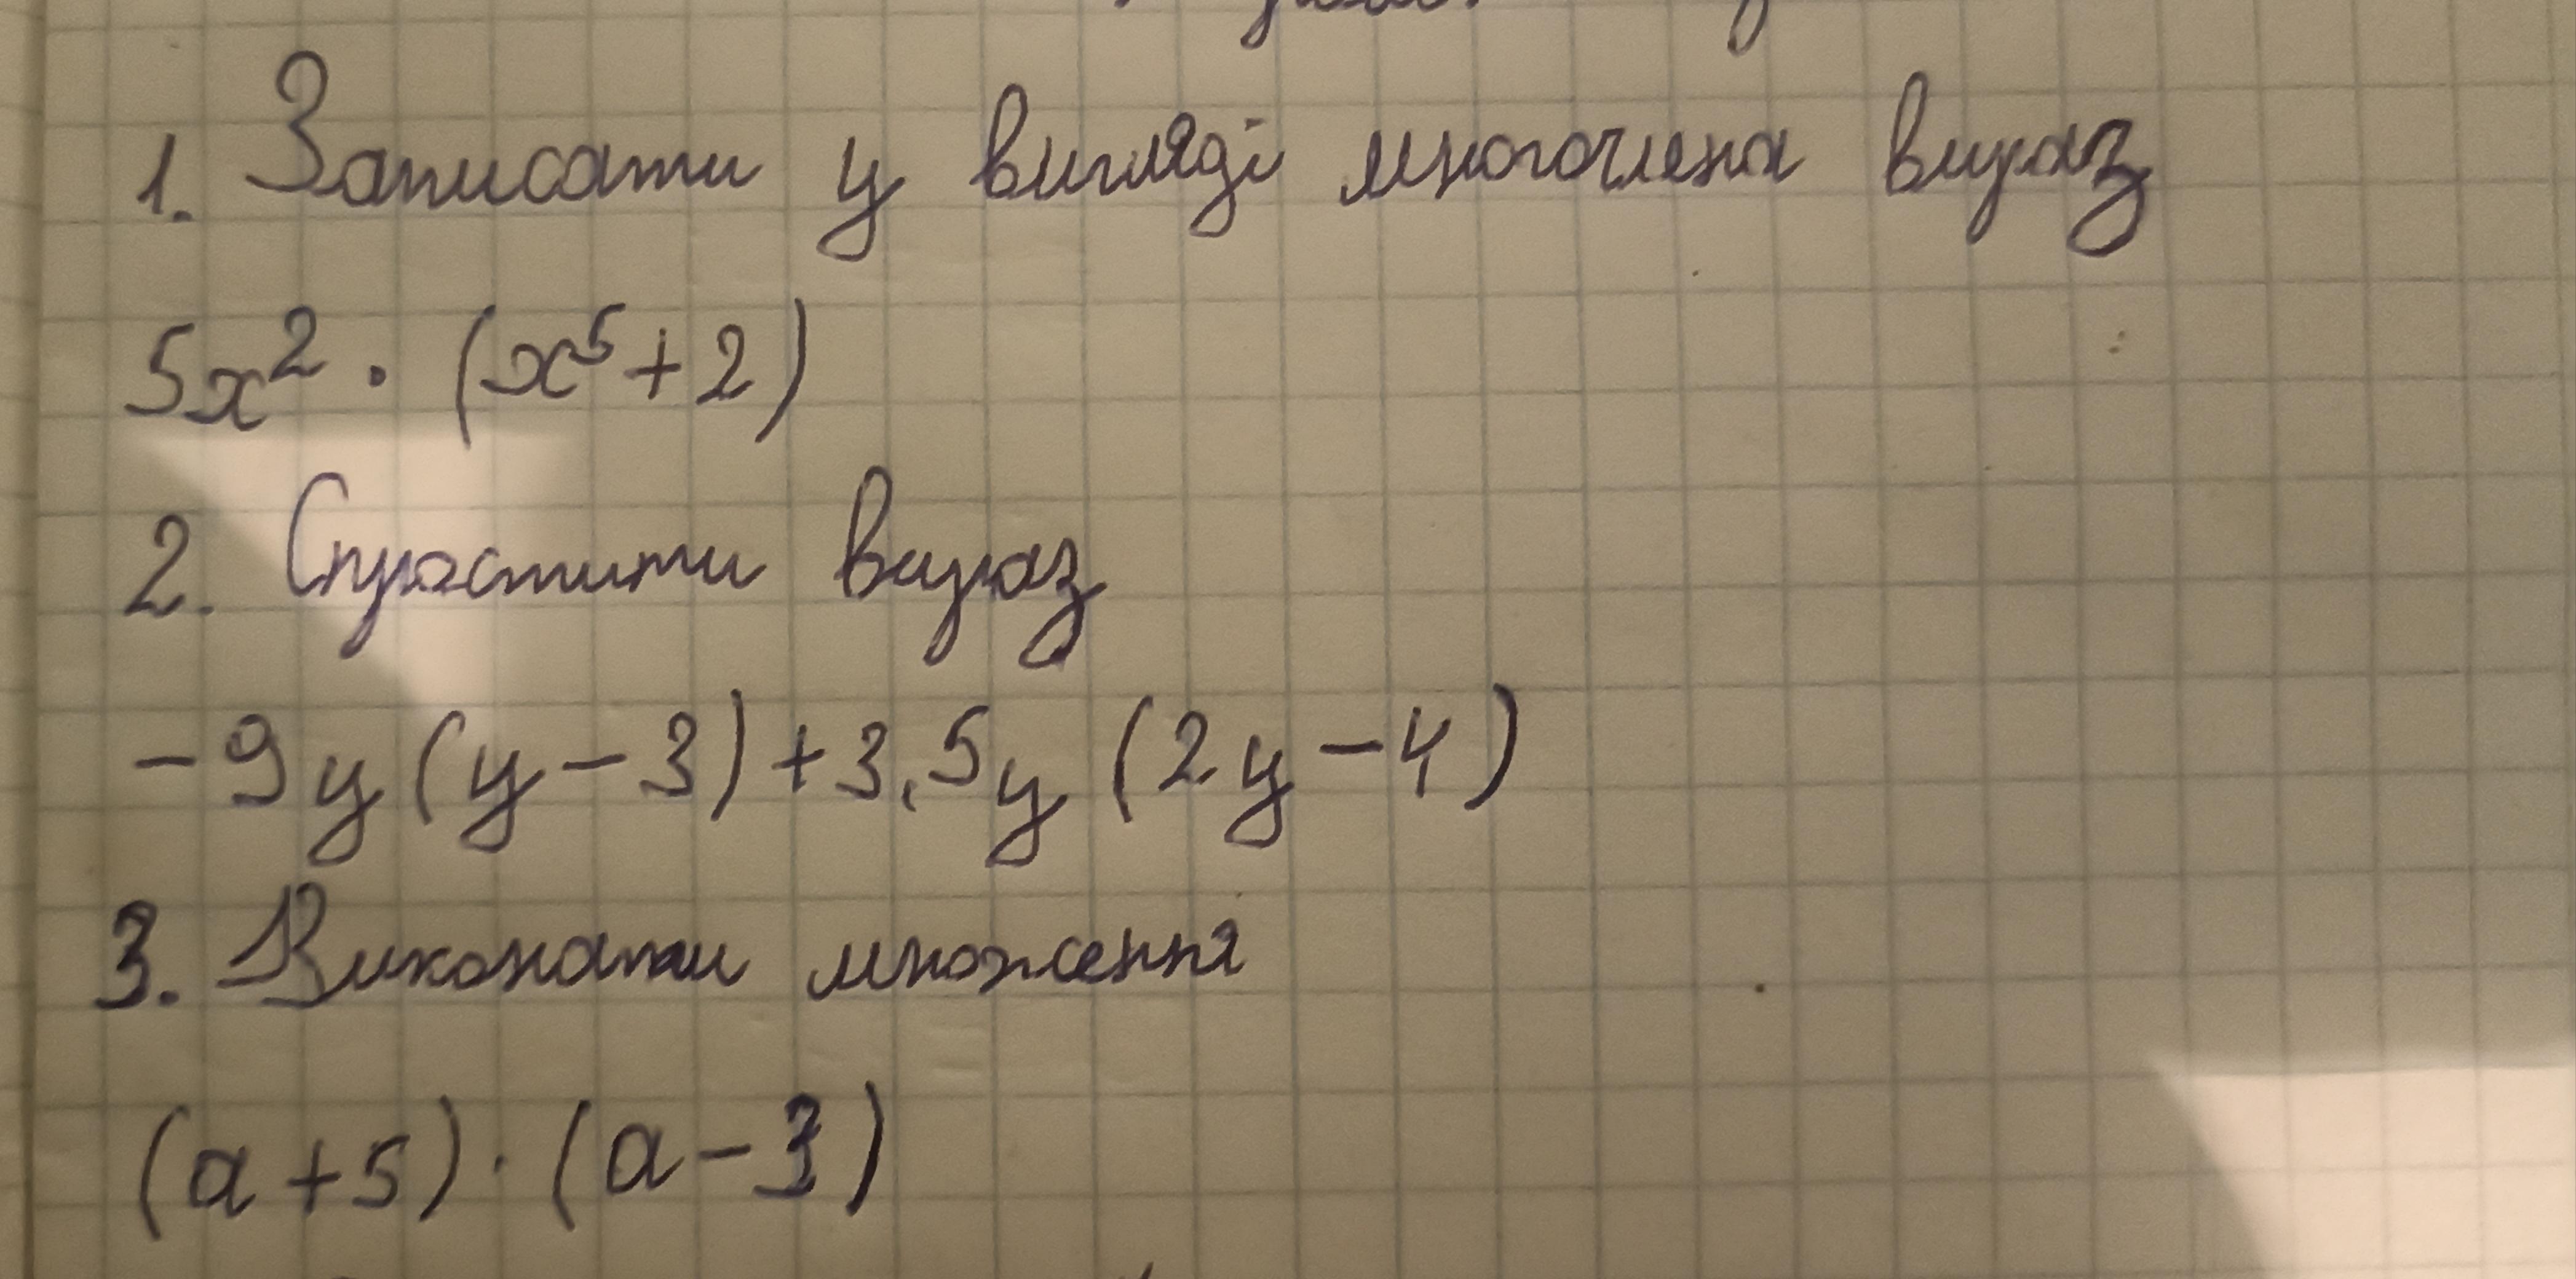 1. Записати у вигляді многочлена вираз
5x² · (x⁵ + 2)
2. Спростити вираз
-9y(y-3)+3,5y(2y-4)
3. Виконати множення
(a+5)·(a-3)